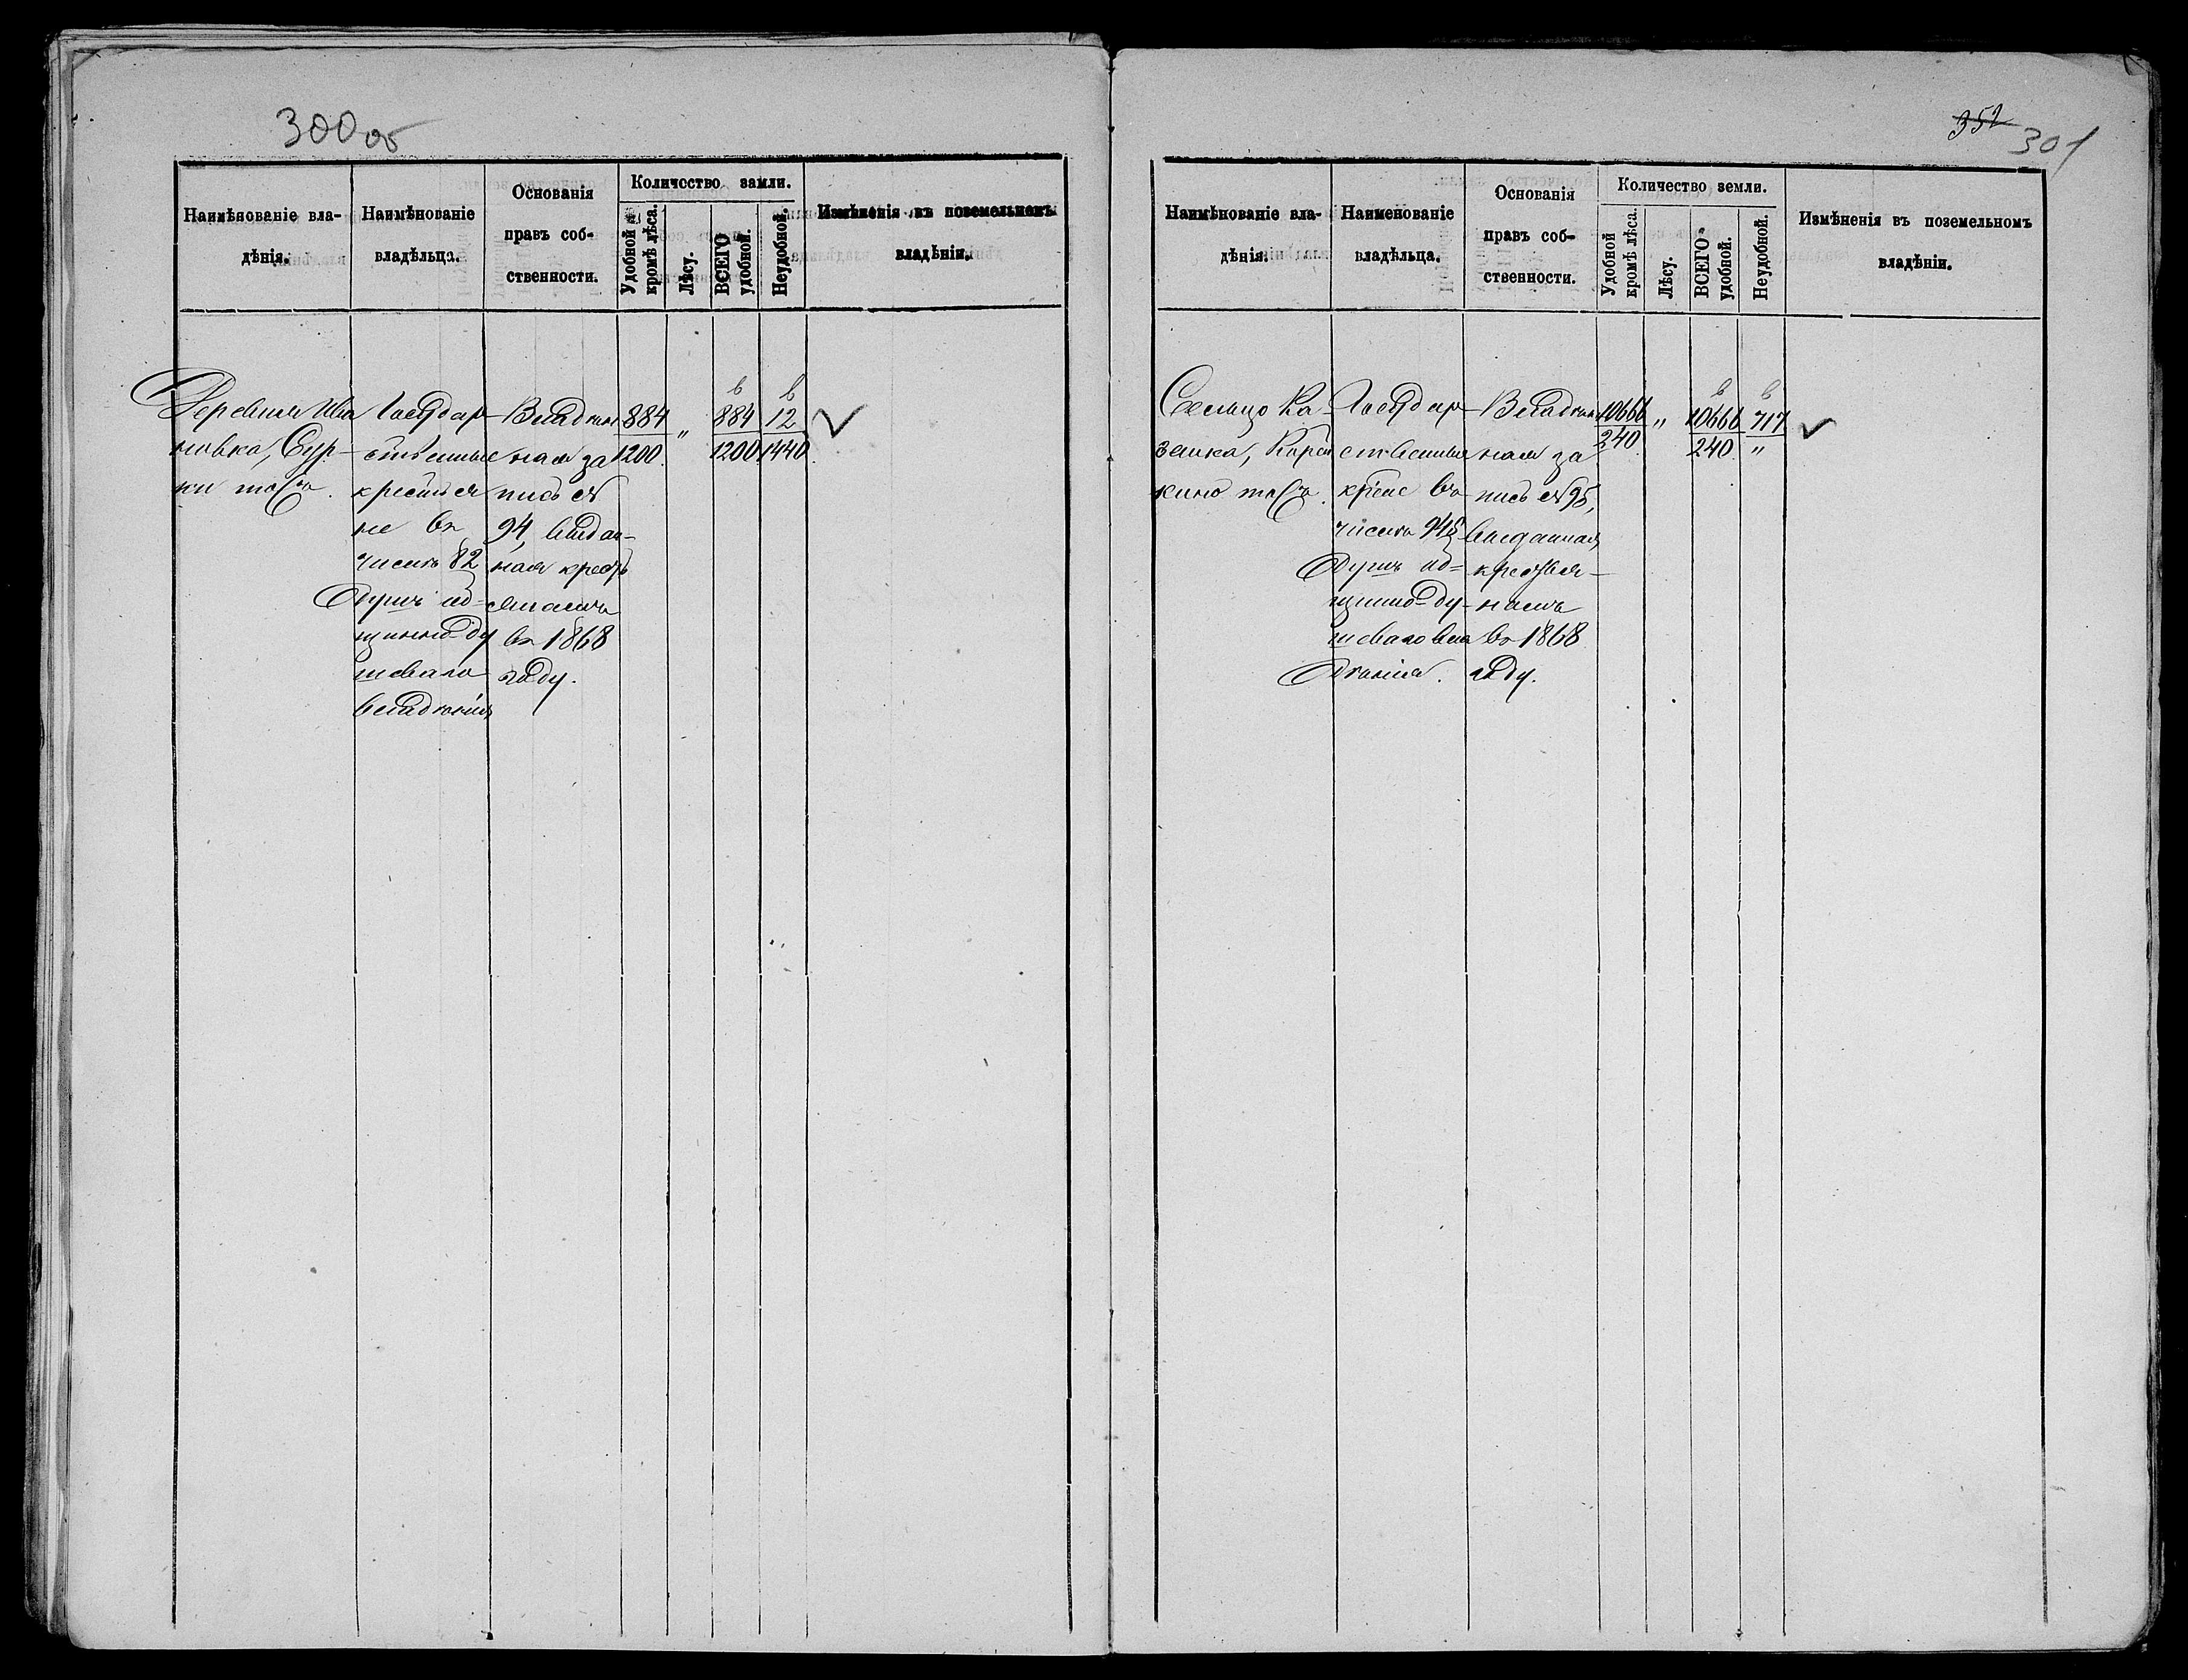 300 об
Наимѣнованіе вла-
дѣнія.
Наимѣнованіе
владѣльца.
Основанія
правъ соб-
ственности.
Количество земли.
Удобной
кромѣ лѣса.
Лѣсу.
ВСЕГО
удобной.
Неудобной.
Измѣненія въ поземельномъ
владѣніи.
Деревня Ива
новка,
тожъ.
Государ-
ственные
крестья
не въ
числѣ 82
душъ об-
щинно ду
шеваго
владѣнія
Владѣн
ная за
пись №
94, выдан-
ная кресть
янамъ
въ 1868
году.
884
1200
"
884
1200
12
1440
352 301
Наимѣнованіе вла-
дѣнія.
Наименованіе
владѣльца.
Основанія
правъ соб-
ственности.
Количество земли.
Удобной
кромѣ лѣса.
Лѣсу.
ВСЕГО
удобной.
Неудобной.
Измѣненія въ поземельномъ
владѣніи.
Сельцо Ка-
занка,
кино тожъ.
Государ-
ственные
крест въ
числѣ 945
душъ об-
щинно ду-
шеваго вла
дѣнія.
Владѣн
ная за
пись № 95,
выданная
крестья-
намъ
въ 1868
году.
10666
240
"
10666
240
717
"